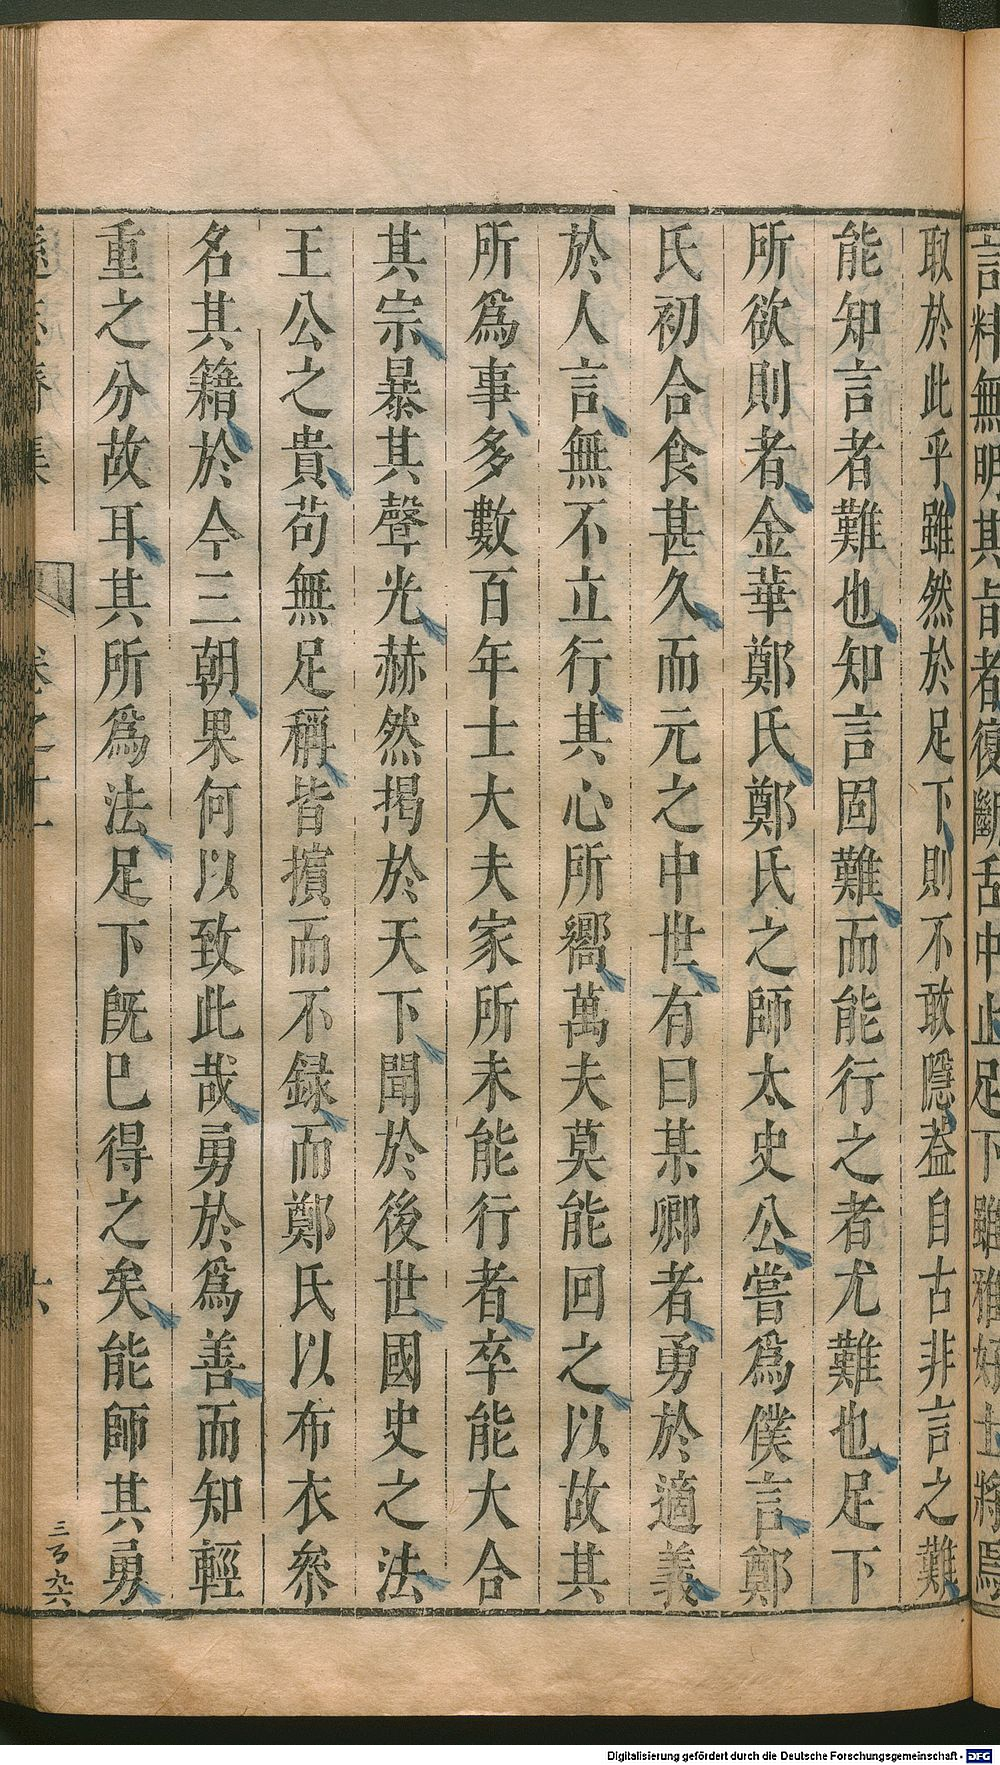 言粹無明其旨者復斷舌中止足下雖雅好士將焉
取於此乎雖然於足下則不敢隱葢自古非言之難
能知言者難也知言固難而能行之者尤難也足下
所欲則者金華鄭氏鄭氏之師太史公嘗爲僕言鄭
氏初合食甚久而元之中世有曰某卿者勇於適義
於人言無不立行其心所嚮萬夫莫能回之以故其
所爲事多數百年士大夫家所未能行者卒能大合
其宗暴其聲光赫然揭於天下聞於後世國史之法
王公之貴苟無足稱皆擯而不録而鄭氏以布衣叅
名其籍於今三朝果何以致此哉勇於爲善而知輕
重之分故耳其所爲法足下既已得之矣能師其勇
遜志齋集 卷之十一 六
三百九六
Digitalisierung gefördert durch die Deutsche Forschungsgemeinschaft - DFG